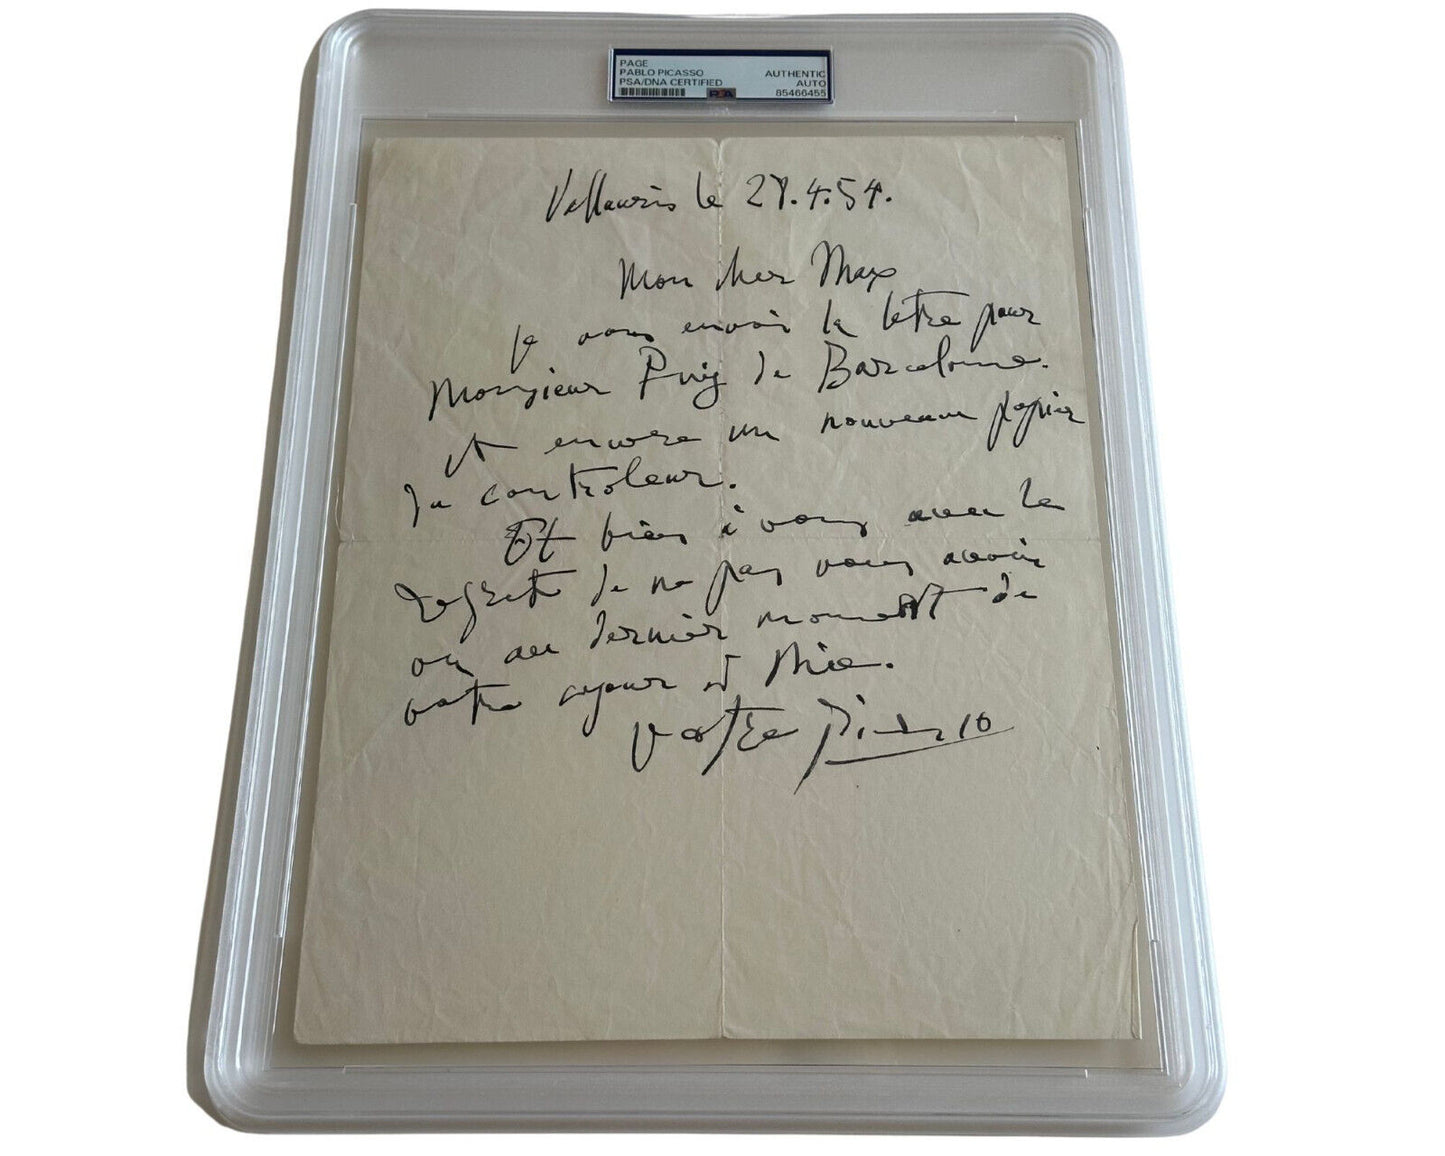 PAGE
PABLO PICASSO
PSA/DNA CERTIFIED
AUTHENTIC
AUTO
PSA
85466455
Vallauris le 27.4.54.
Mon cher Max
Je vous envoie la lettre pour
Monsieur Puig de Barcelonne.
et encore un nouveau papier
du controleur.
Et bien à vous avec le
regret de ne pas vous avoir
vu au dernier moment de
votre sejour à Nice.
Votre Picasso